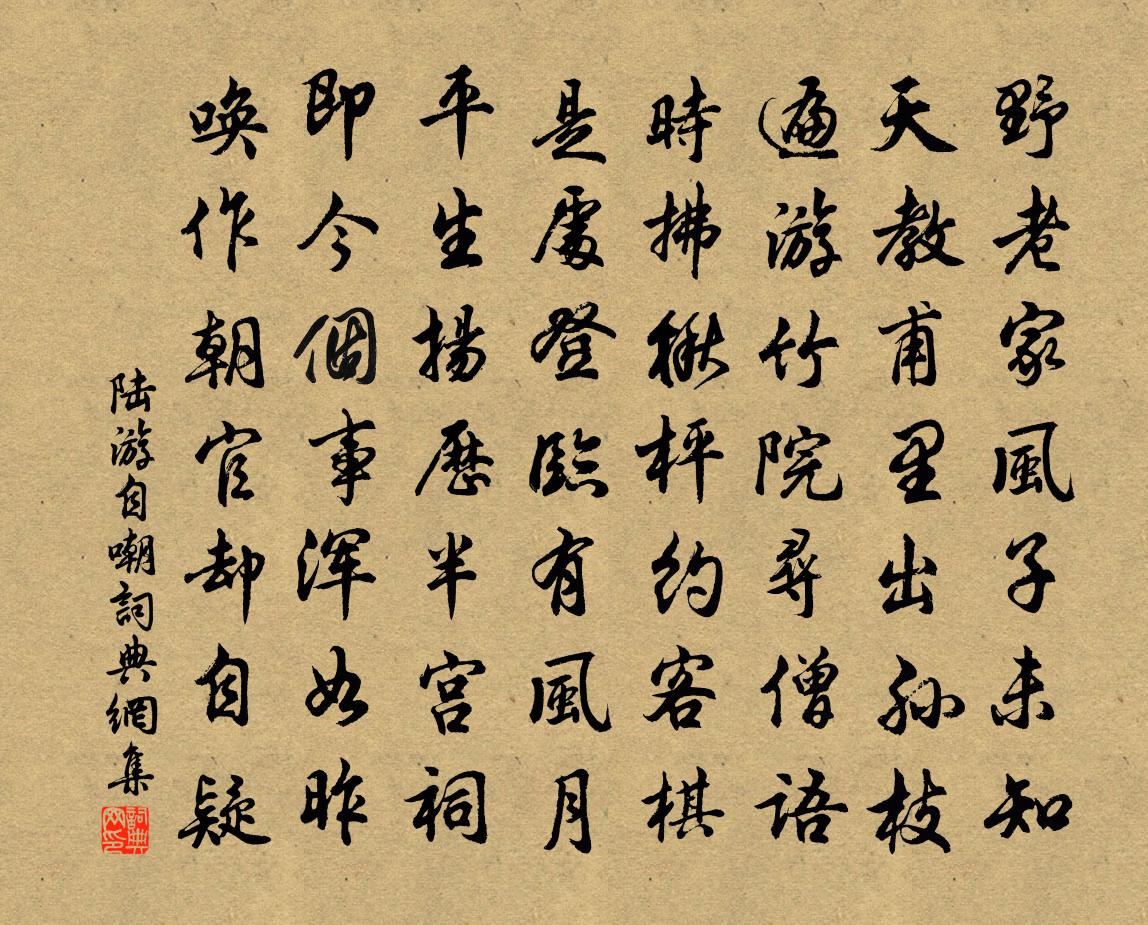 野老家風子未知
天教甫里出孙枝
遍游竹院尋僧語
時拂楸枰約客棋
是處登臨有風月
平生揚歷半宮祠
即今個事渾如昨
喚作朝官却自疑
陆游自嘲詞典網集
詞典网印